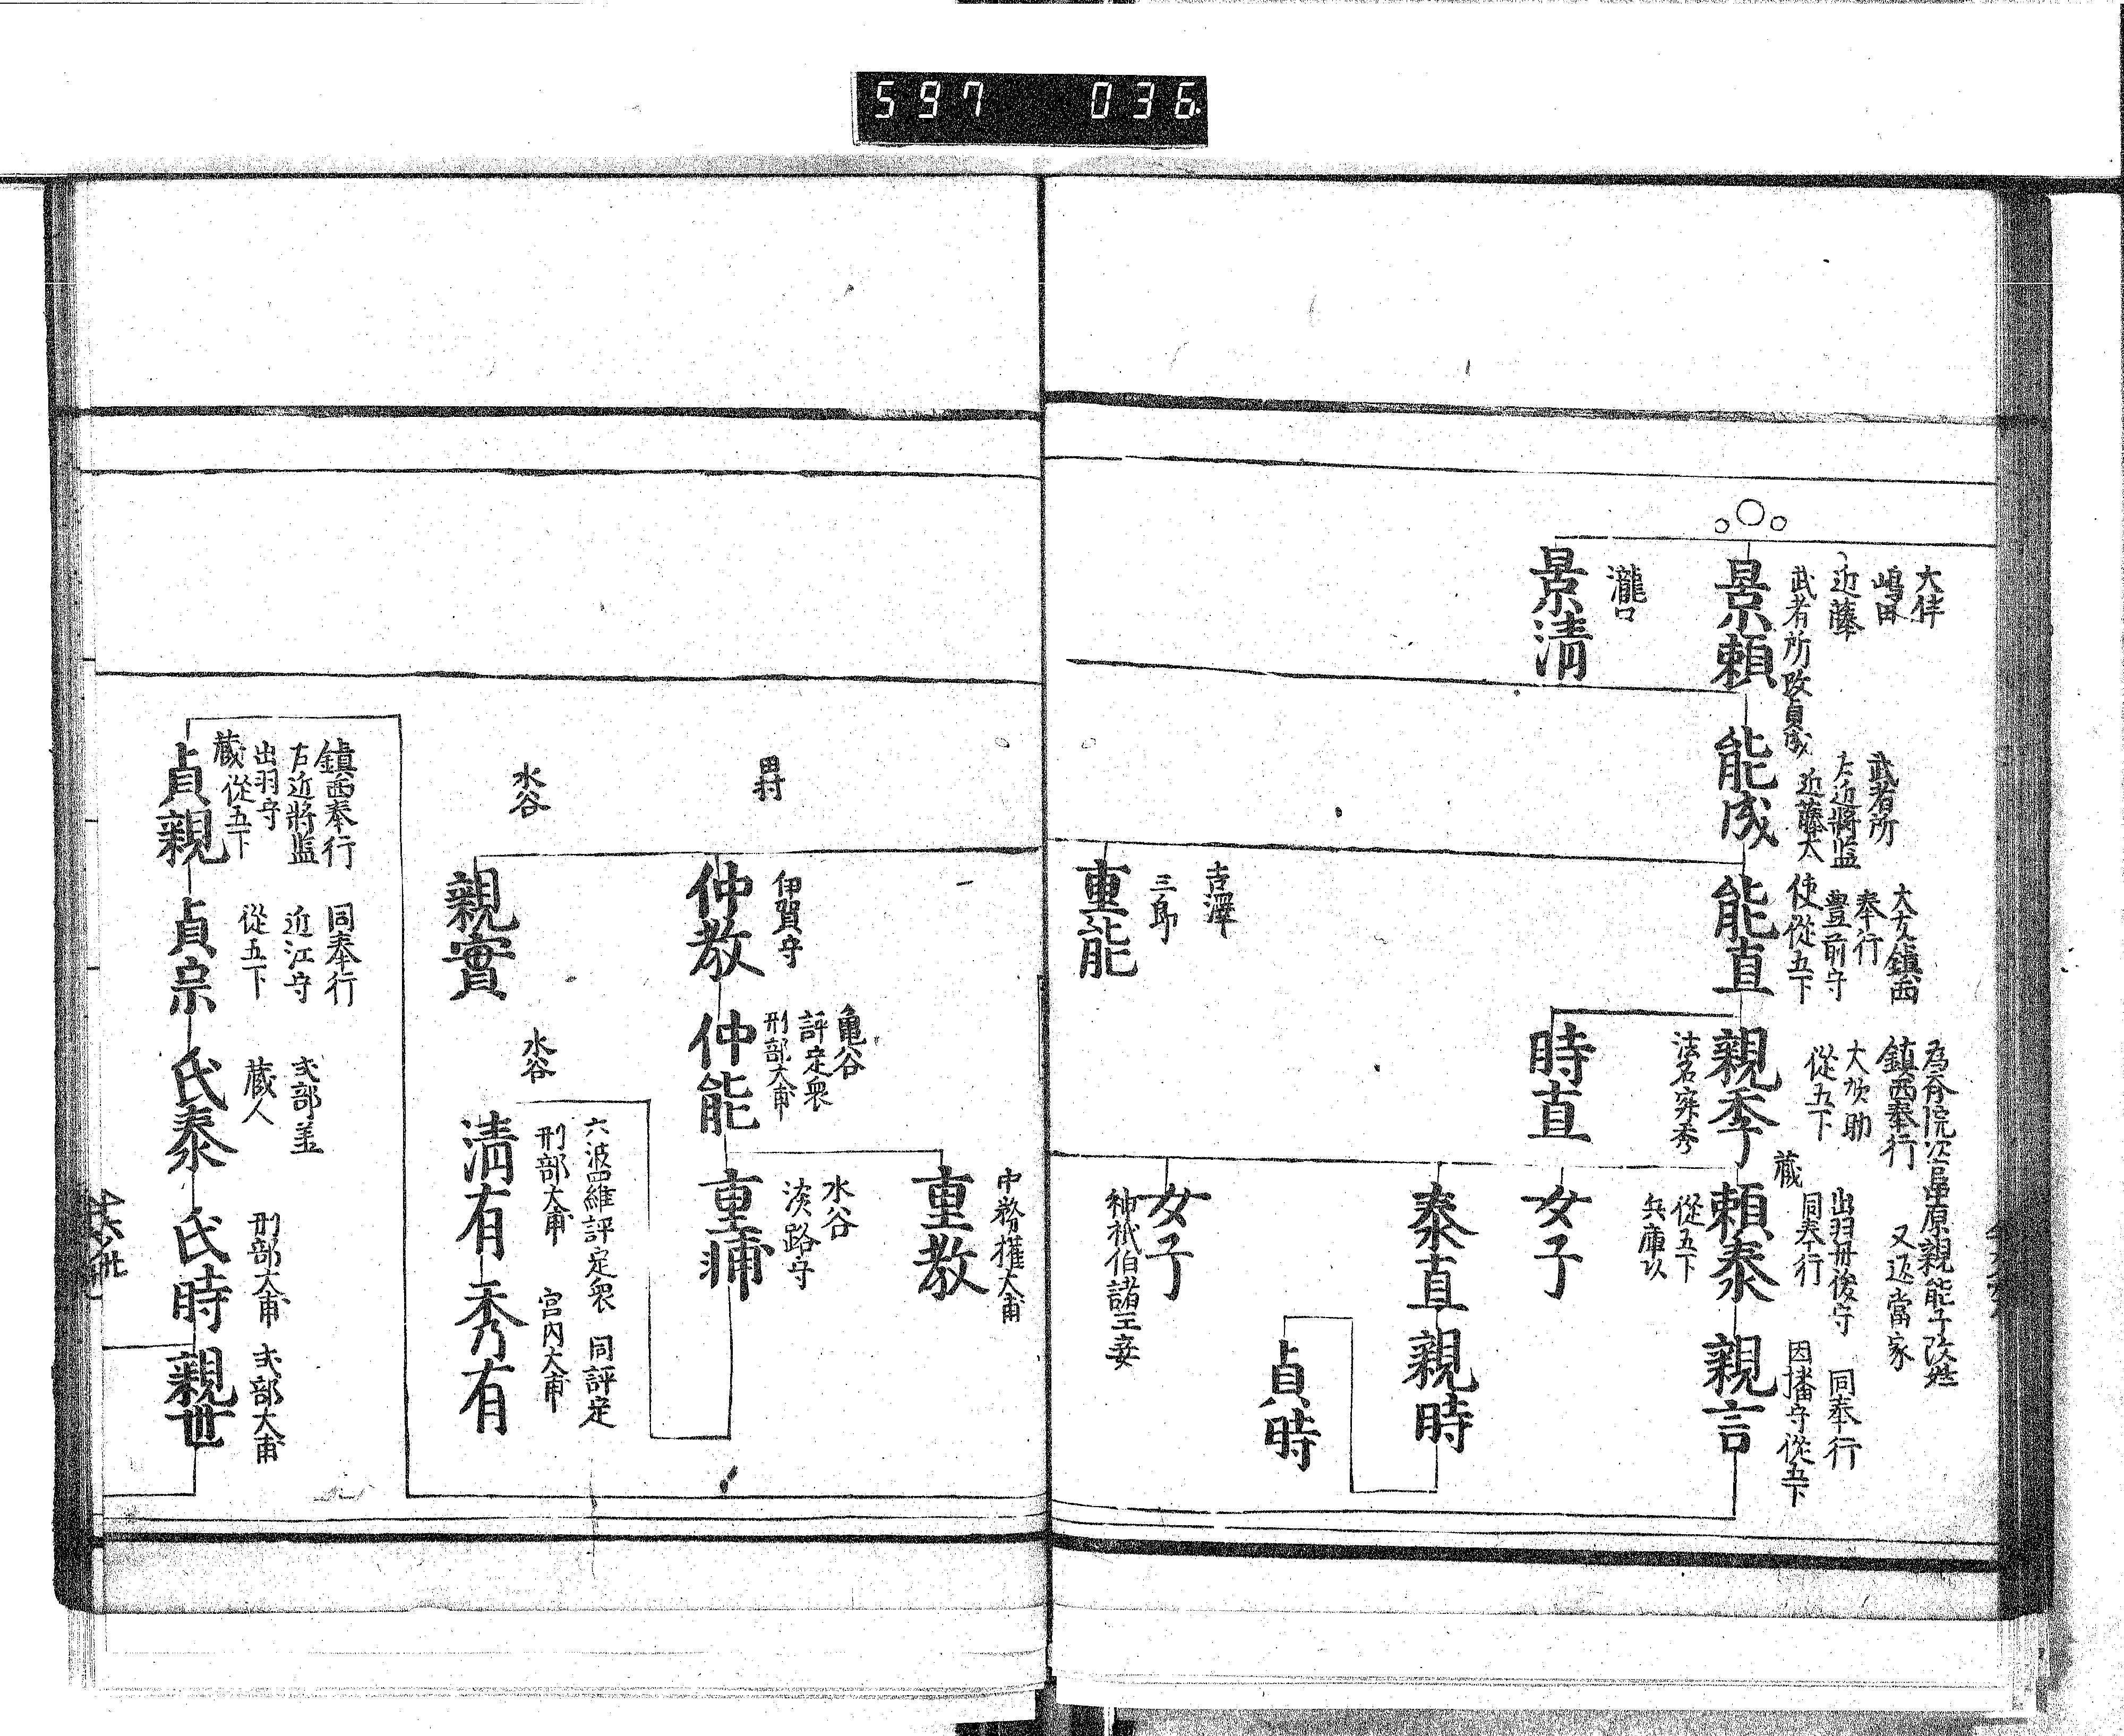 597 036
大伴
嶋田
近藤
武者所改貞成
景頼
瀧口
景清
武者所
左近將監
近藤太
能成
大友鎮西
奉行
豊前守
使從五下
能直
吉澤
三郎
重能
為斎院次官原親能子改姓
又返當家
鎮西奉行
大炊助
從五下
親秀
法名寂秀
時直
出羽丹後守
同奉行
蔵
頼泰
從五下
兵庫頭
女子
泰直
親時
貞時
女子
神祇伯諸王妾
同奉行
因播守從五下
親言
田村
伊賀守
仲教
亀谷
評定衆
刑部大甫
仲能
中務權大甫
重教
水谷
淡路守
重輔
水谷
親實
水谷
六波羅維評定衆
刑部大甫
清有
同評定
宮内大甫
秀有
鎮西奉行
左近將監
出羽守
蔵從五下
貞親
同奉行
近江守
從五下
貞宗
式部丞
蔵人
氏泰
刑部大甫
氏時
式部大甫
親世